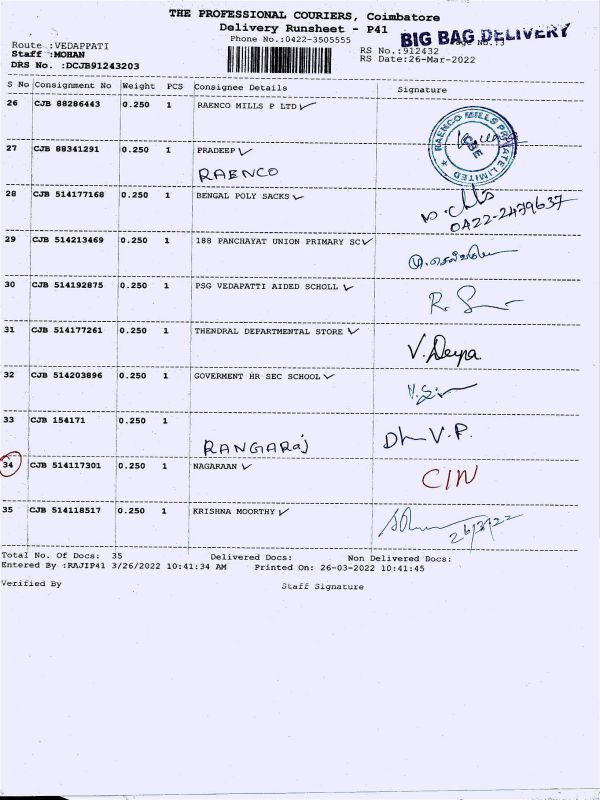 THE PROFESSIONAL COURIERS, Coimbatore
Delivery Runsheet - P41
BIG BAG DELIVERY
Phone No.:0422-3505555
Route :VEDAPPATI
RS No.:912432
Staff :MOHAN
RS Date:26-Mar-2022
DRS No. :DCJB91243203
S No Consignment No Weight PCS Consignee Details Signature
26 CJB 88286443 0.250 1 RAENCO MILLS P LTD ✓
RAENCO MILLS PRIVATE LIMITED
27 CJB 88341291 0.250 1 PRADEEP ✓
RAENCO
28 CJB 514177168 0.250 1 BENGAL POLY SACKS ✓
0422-2479637
29 CJB 514213469 0.250 1 188 PANCHAYAT UNION PRIMARY SC ✓
30 CJB 514192875 0.250 1 PSG VEDAPATTI AIDED SCHOLL ✓
31 CJB 514177261 0.250 1 THENDRAL DEPARTMENTAL STORE ✓ V.Deepa
32 CJB 514203896 0.250 1 GOVERMENT HR SEC SCHOOL ✓
33 CJB 154171 0.250 1
RANGARaj
34 CJB 514117301 0.250 1 NAGARAAN ✓ C/N
35 CJB 514118517 0.250 1 KRISHNA MOORTHY ✓ 26/3/22
Total No. Of Docs: 35 Delivered Docs: Non Delivered Docs:
Entered By :RAJIP41 3/26/2022 10:41:34 AM Printed On: 26-03-2022 10:41:45
Verified By Staff Signature